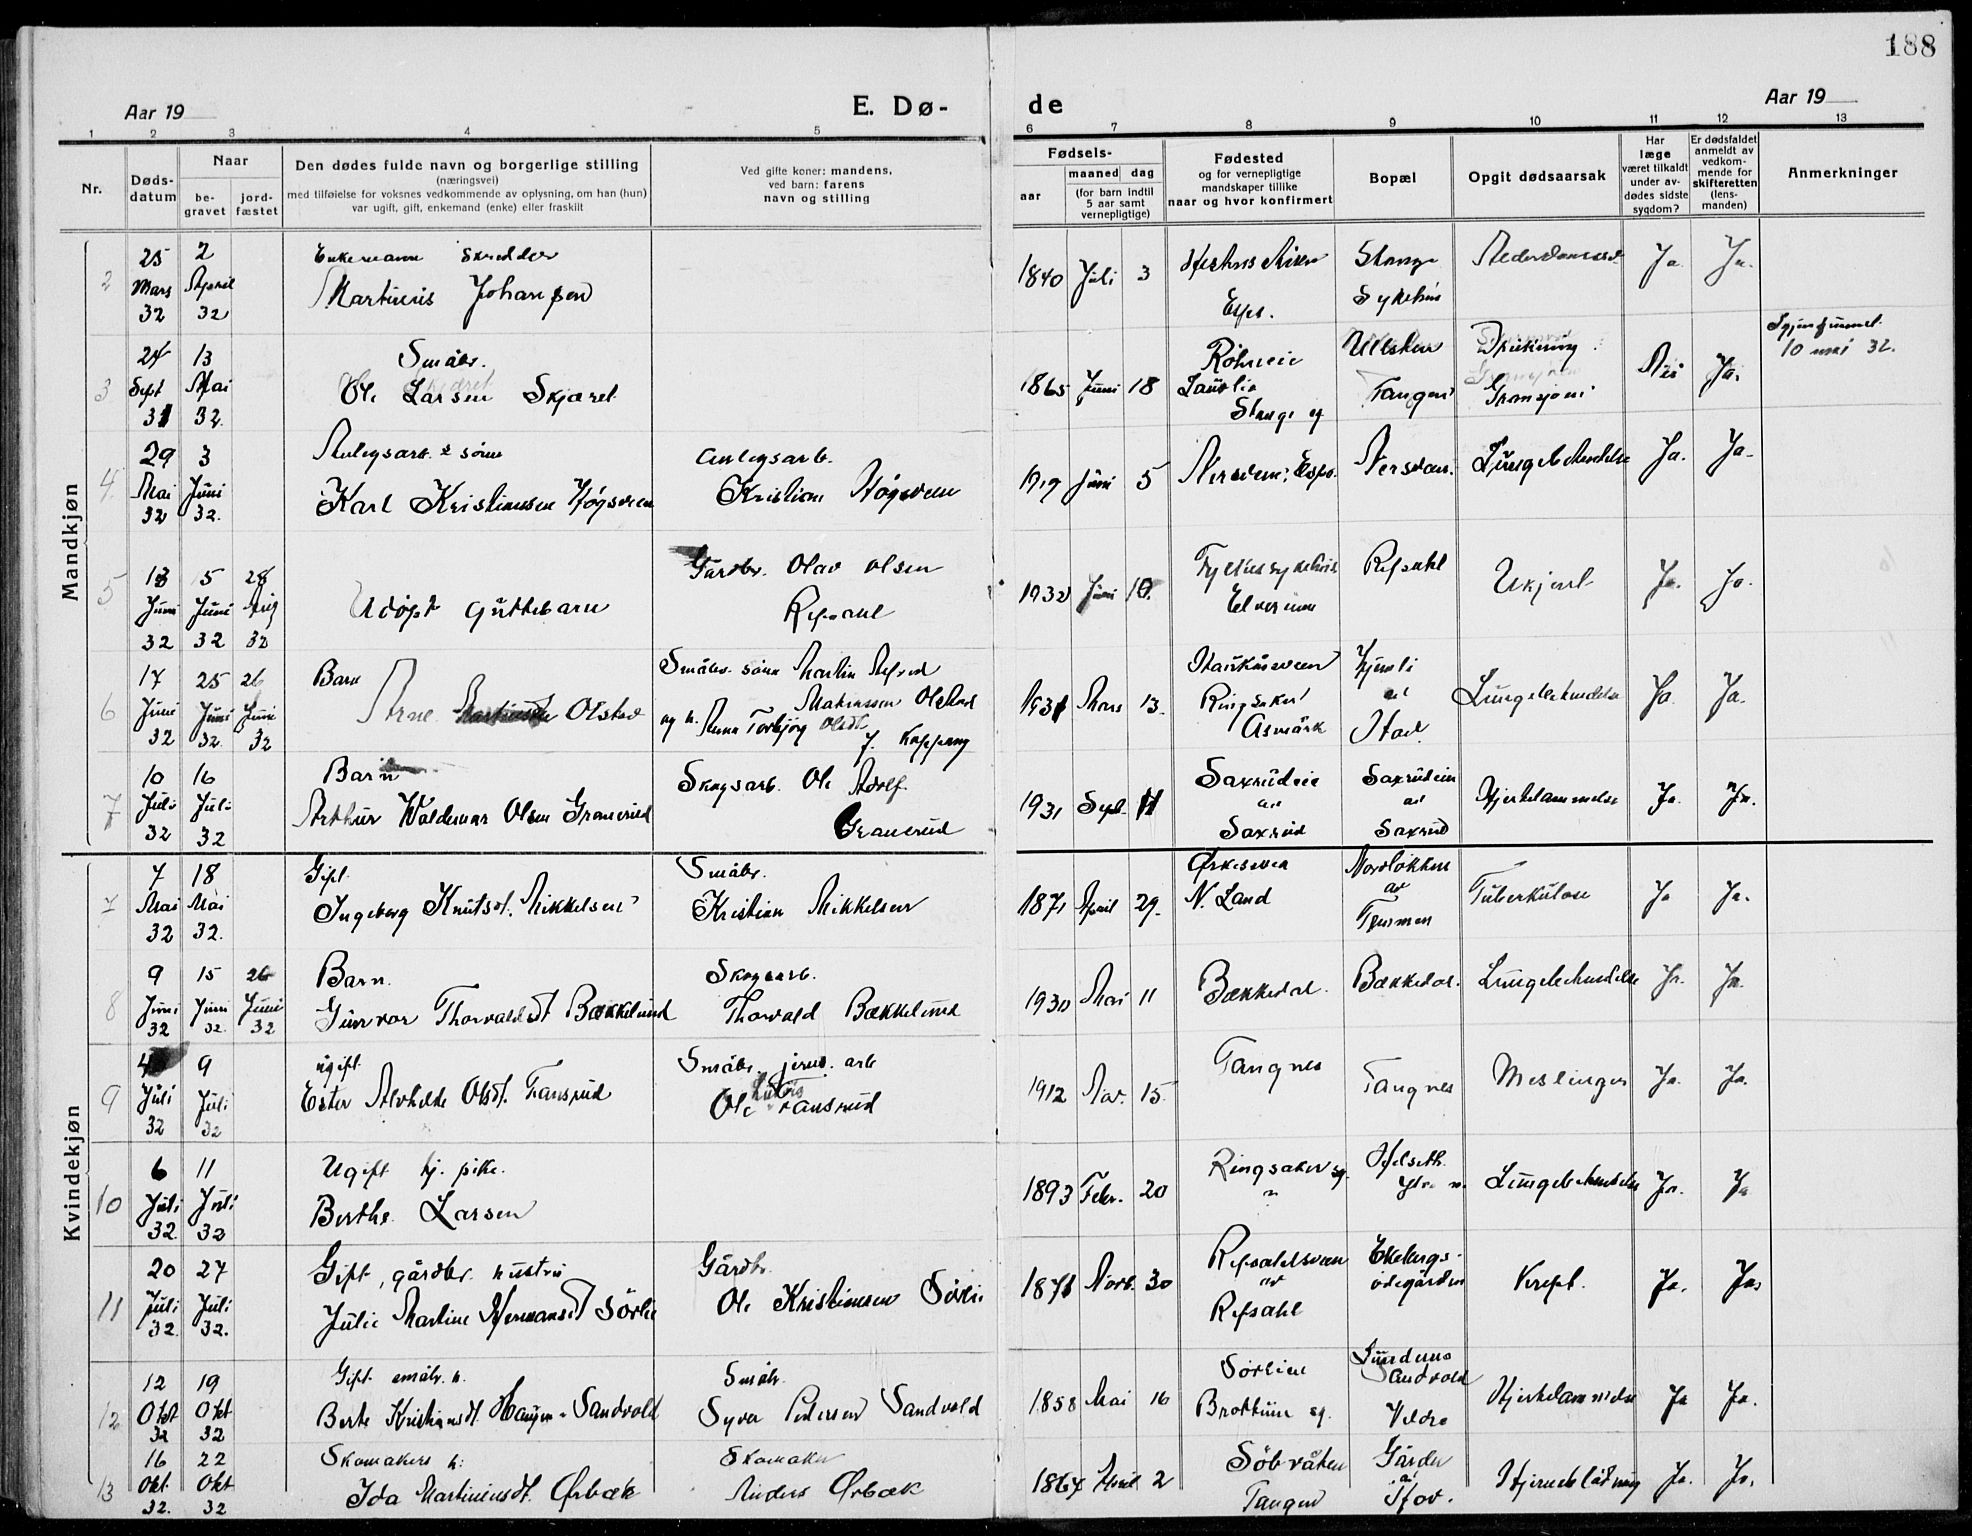 188
Aar 19
E. Dø-
de
Aar 19
1 2 3 4 5 6 7 8 9 10 11 12 13
Nr.
Døds-
datum
Naar
be-
gravet
jord-
fæstet
Den dødes fulde navn og borgerlige stilling
(næringsvei)
med tilføielse for voksnes vedkommende av oplysning, om han (hun)
var ugift, gift, enkemand (enke) eller fraskilt
Ved gifte koner: mandens,
ved barn: farens
navn og stilling
Fødsels-
aar
maaned dag
(for barn indtil
5 aar samt
vernepligtige)
Fødested
og for vernepligtige
mandskaper tillike
naar og hvor konfirmert
Bopæl
Opgit dødsaarsak
Har
læge
været tilkaldt
under av-
dødes sidste
sygdom?
Er dødsfaldet
anmeldt av
vedkom-
mende for
skifteretten
(lens-
manden)
Anmerkninger
Mandkjøn
2
25 Mars 32
2 April 32
Enkemann Skredder
Martinus Johansen
1840 Juli 3
Espa.
Stange
Sykehus
Ja
Ja.
3
24 Sept 31
13 Mai 32.
Småbr.
Ole Larsen Skjæret
1865 Juni 18
Stange sg
Ullsten
Tangen
Drukning
Gransjøen
Nei
Ja.
10 mai 32.
4
29 Mai 32
3 Juni 32.
Anlegsarb.s sønn
Karl Kristiansen Høgsveen
Anlegsarb.
Kristian Høgsveen
1919 Juni 5
Espa.
Lungebetendelse
Ja.
Ja.
5
13 Juni 32
15 Juni 32
28 Aug 32
Udøpt guttebarn
Gårdbr. Olav Olsen
Refsahl
1932 Juni 10.
Fylkessykehus
Elverum
Refsahl
Ukjent
Ja.
Ja.
6
17 Juni 32
25 Juni 32.
26 Juni 32
Barn
Arne Olstad
Småbr. sønn Martin Alfred
Matiassen Olstad
og h. Anna Torbjørg Olsdt.
f. Koppang
1931 Mars 13.
Ringsaker
Asmark
Lungebetendelse
Ja
Ja.
7
10 Juli 32
16 Juli 32
Barn
Arthur Waldemar Olsen Granerud
Skogsarb. Ole Adolf
Granerud
1931 Sept. 11
Saxrudeie
av
Saxrud
Saxrudeie
av
Saxrud
Hjertelammelse
Ja.
Ja.
Kvindekjøn
7
7 Mai 32
18 Mai 32.
Gift
Ingeborg Knutsdt. Mikkelsen
Småbr.
Kristian Mikkelsen
1871 April 29.
N. Land
Nordløkken
av
Tuberkulose
Ja
Ja.
8
9 Juni 32
15 Juni 32.
26 Juni 32
Barn.
Gunvor Thorvaldsdt Bækkelund
Skogsarb.
Thorvald Bækkelund
1930 Mai 11
Bækkedal.
Bækkedal.
Lungebetendelse
Ja.
Ja.
9
4 Juli 32
9 Juli 32
ugift
Ester Alvhilde Olsdt. Fansrud
Småbr. jernb. arb
Ole Fansrud
1912 Nov. 15
Tangnes
Tangnes
Meslinger
Ja.
Ja.
10
6 Juli 32.
11 Juli 32
Ugift hj. pike.
Berthe Larsen
1893 Febr. 20
Ringsaker sg.
"
Lungebetendelse
Ja.
Ja
11
20 Juli 32.
27 Juli 32.
Gift, gårdbr. hustru
Julie Martine Hermansdt Sørlie
Gårdbr.
Ole Kristiansen Sørlie
1871 Novb. 30
Refsahlsveen
av
Refsahl
Ekebergs-
ødegården
Kreft.
Ja.
Ja.
12
12 Okt 32
19 Okt 32
Gift småbr. h.
Berte Kristiansdt. Haugen-Sandvold
Småbr.
Syver Pedersen Sandvold
1858 Mai 16
Sørlien
Brøttum sg.
Sandvold
Veldre
Hjertelammelse
Ja
Ja.
13
16 Okt. 32.
22 Okt 32
Skomakers h.
Ida Martiniusdt. Ørbæk
Skomaker
Anders Ørbæk
1864 April 2
Tangen
Hjerneblødning
Ja.
Ja.